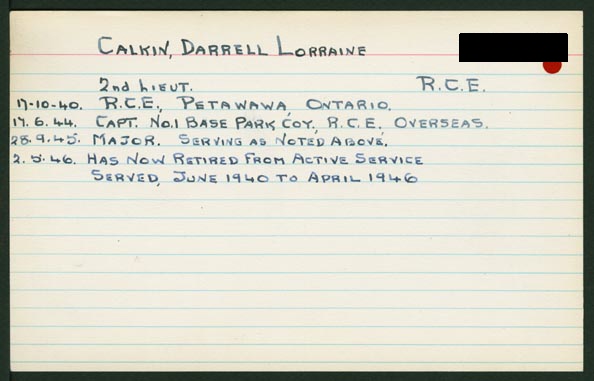 CALKIN, DARRELL LORRAINE
2nd LIEUT. R.C.E.
17-10-40. R.C.E., PETAWAWA, ONTARIO.
17.6.44. CAPT. NO.1 BASE PARK COY., R.C.E. OVERSEAS.
28.9.45. MAJOR. SERVING AS NOTED ABOVE.
2.5.46. HAS NOW RETIRED FROM ACTIVE SERVICE
SERVED, JUNE 1940 TO APRIL 1946